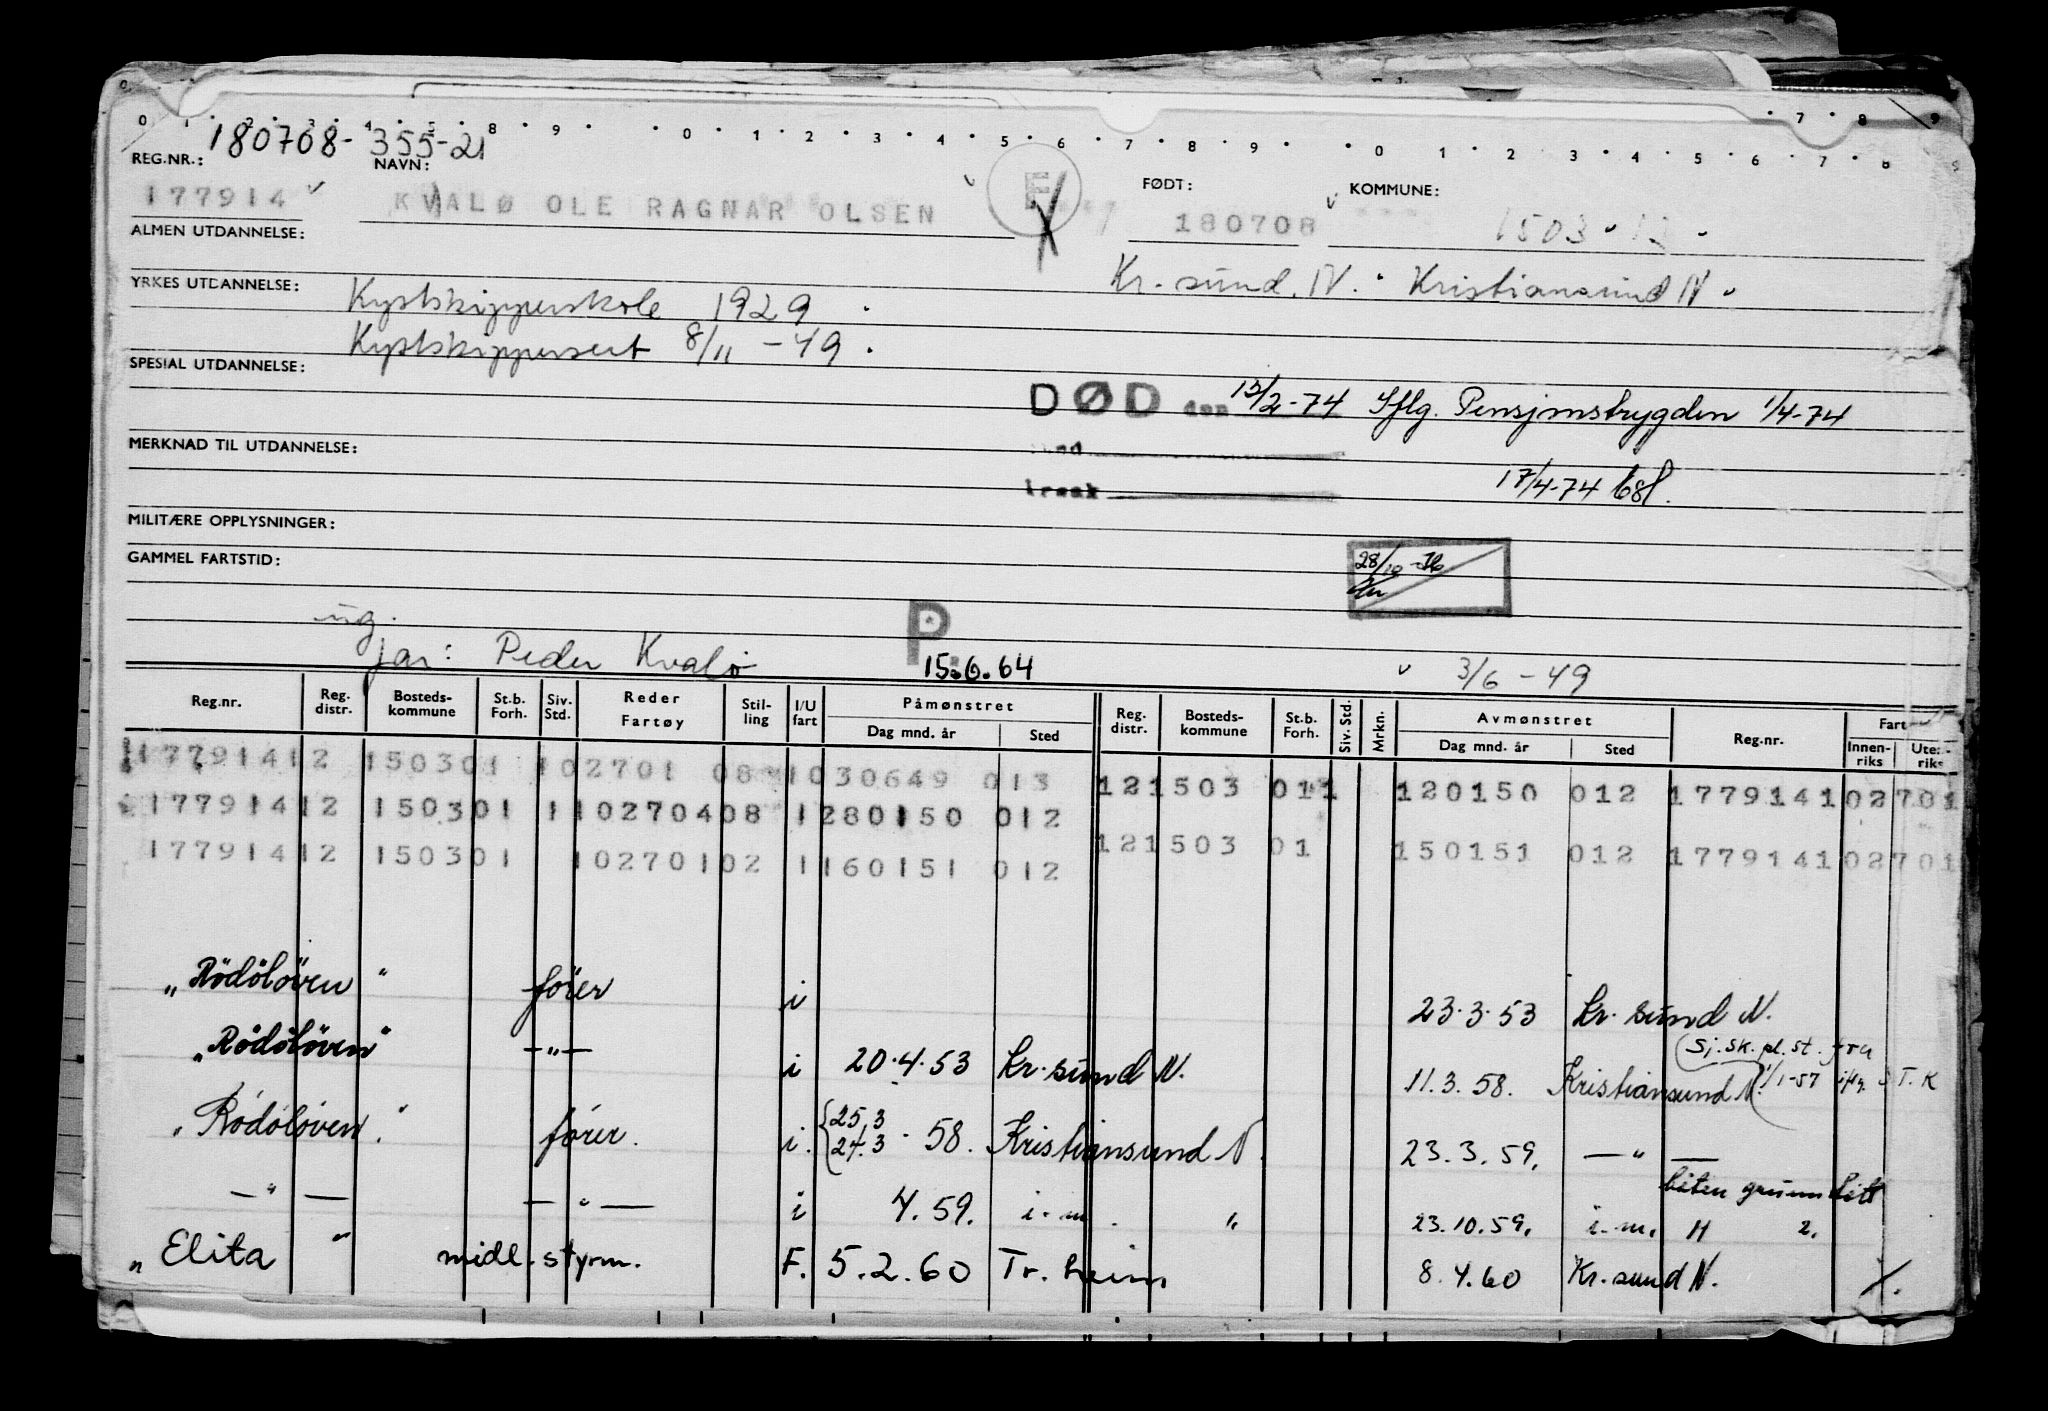 180708-355-21
REG.NR.: NAVN: FØDT: KOMMUNE:
177914 KVALØ OLE RAGNAR OLSEN 180708 1503
ALMEN UTDANNELSE:
Kr. sund. N. Kristiansund N
YRKES UTDANNELSE: Kystskipperskole 1929
Kystskippersert 8/11 -49
SPESIAL UTDANNELSE:
DØD den 13/2-74 Iflg. Pensjonstrygden 1/4-74
MERKNAD TIL UTDANNELSE:
17/4-74
MILITÆRE OPPLYSNINGER:
GAMMEL FARTSTID: 28/10
ug.
far: Peder Kvalø P 15.6.64 3/6 - 49
Reg.nr. Reg. distr. Bosteds- kommune St.b. Forh. Siv. Std. Reder Fartøy Stil- ling I/U fart Påmønstret Dag mnd. år Sted Reg. distr. Bosteds- kommune St.b. Forh. Siv. Std. Mrkn. Avmønstret Dag mnd. år Sted Reg.nr. Fart Innen- riks Uten- riks
17791412 150301 102701 08 1030649 013 121503 011 120150 012 1779141 02701
17791412 150301 1 10270408 1280150 012 121503 01 150151 012 1779141 02701
17791412 150301 10270102 1160151 012
"Rödölöven" fører i 23.3.53 Kr. sund N.
"Rödölöven" -"- i 20.4.53 Kr. sund N. 11.3.58. Kristiansund N. (Sj.sk.pl.st. fra 1/1-57 iflg. S.T.K
"Rödölöven" fører. i. {25.3 24.3 58. Kristiansund N. 23.3.59. -"-
-"- -"- i 4.59. i-m. " 23.10.59. i.m. H 2.
"Elita" midl. styrm. F. 5.2.60 Tr.heim 8.4.60 Kr.sund N.